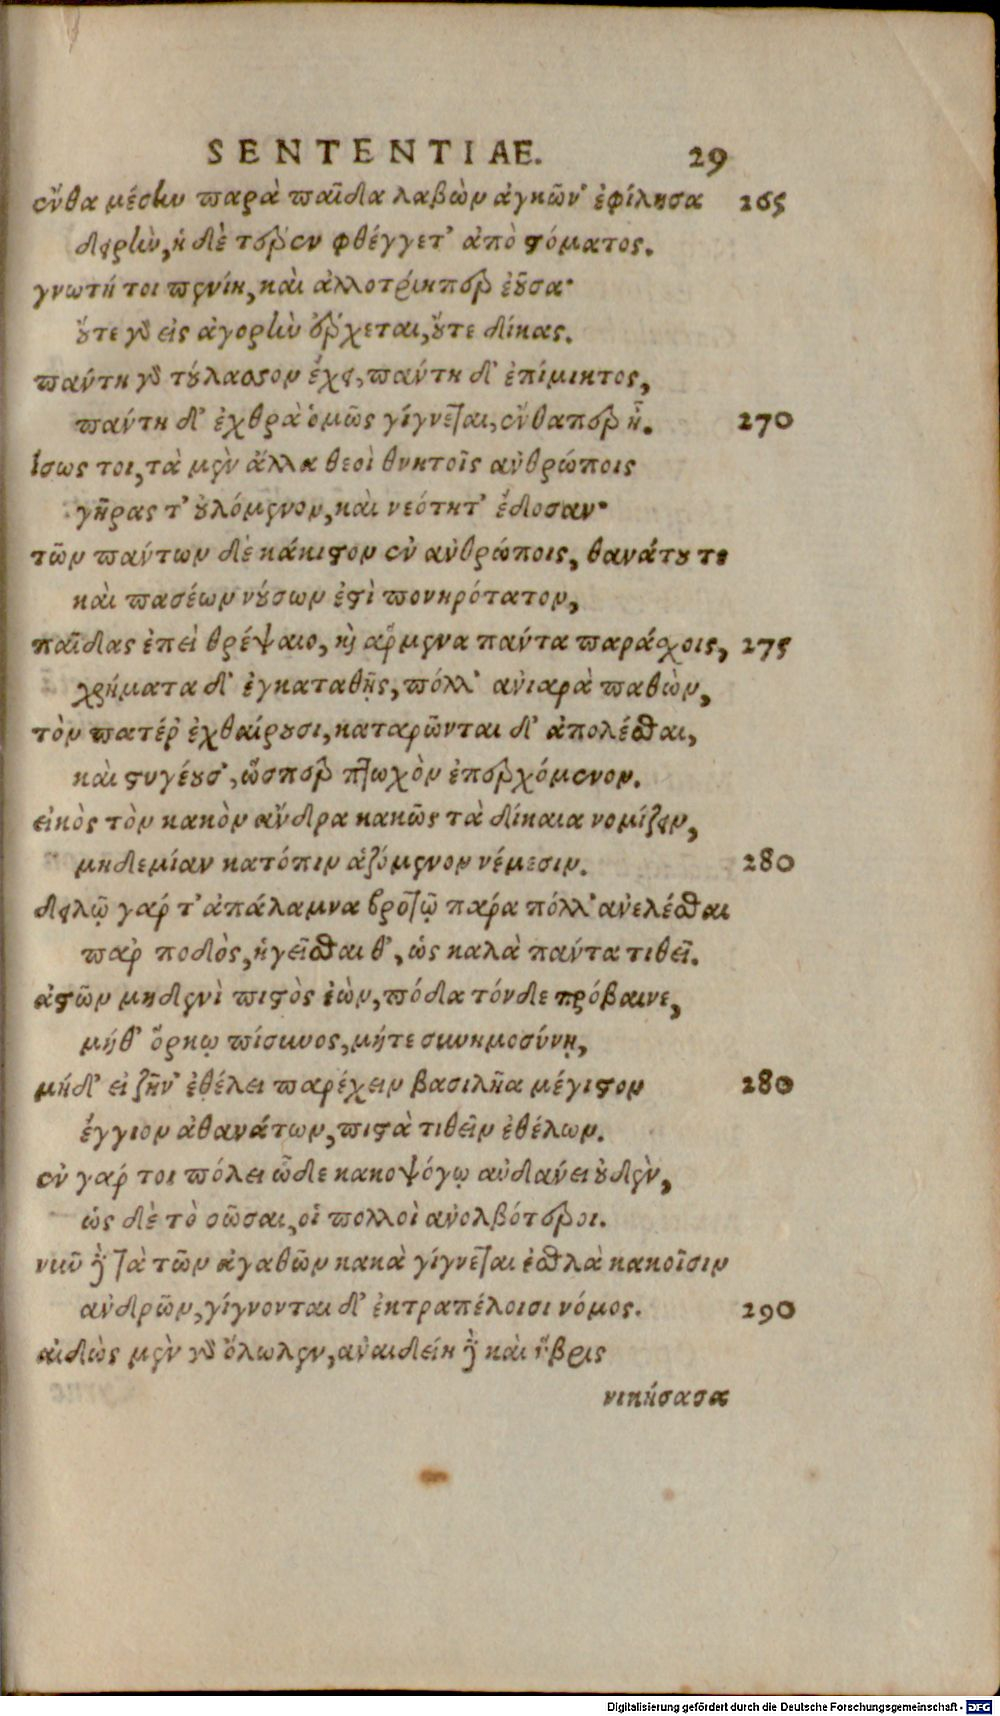 SENTENTIAE. 29
ἔνθα μέσην παρὰ παῖδα λαβὼν ἀγκῶν' ἐφίλησα 265
δειρὴν, ἡ δὲ τέρεν φθέγγετ' ἀπὸ στόματος.
γνωτή τοι πενίη, καὶ ἀλλοτρίηπερ ἐοῦσα·
οὔτε γὰρ εἰς ἀγορὴν ἔρχεται, οὔτε δίκας.
πάντη γὰρ τοὔλασσον ἔχει, πάντη δ' ἐπίμικτος,
πάντη δ' ἐχθρὰ ὁμῶς γίγνεται, ἔνθαπερ ᾖ. 270
ἴσως τοι, τὰ μὲν ἄλλα θεοὶ θνητοῖς ἀνθρώποις
γῆρας τ' οὐλόμενον, καὶ νεότητ' ἔδοσαν·
τῶν πάντων δὲ κάκιστον ἐν ἀνθρώποις, θανάτου τε
καὶ πασέων νούσων ἐστὶ πονηρότατον,
παῖδας ἐπεὶ θρέψαιο, καὶ ἄρμενα πάντα παράσχοις, 275
χρήματα δ' ἐγκαταθῇς, πόλλ' ἀνιαρὰ παθὼν,
τὸν πατέρ' ἐχθαίρουσι, καταρῶνται δ' ἀπολέσθαι,
καὶ στυγέουσ', ὥσπερ πτωχὸν ἐπερχόμενον.
εἰκὸς τὸν κακὸν ἄνδρα κακῶς τὰ δίκαια νομίζειν,
μηδεμίαν κατόπιν ἁζόμενον νέμεσιν. 280
δειλῷ γάρ τ' ἀπάλαμνα βροτῷ πάρα πόλλ' ἀνελέσθαι
πὰρ ποδὸς, ἡγεῖσθαι θ', ὡς καλὰ πάντα τιθεῖ.
ἀστῶν μηδενὶ πιστὸς ἐὼν, πόδα τόνδε πρόβαινε,
μήθ' ὅρκῳ πίσυνος, μήτε συνημοσύνῃ,
μήδ' εἰ ζῆν' ἐθέλει παρέχειν βασιλῆα μέγιστον 280
ἔγγιον ἀθανάτων, πιστὰ τιθεῖν ἐθέλων.
ἐν γάρ τοι πόλει ὧδε κακοψόγῳ αὐδάνει οὐδὲν,
ὡς δὲ τὸ σῶσαι, οἱ πολλοὶ ἀνολβότεροι.
νῦν δὲ τὰ τῶν ἀγαθῶν κακὰ γίγνεται ἐσθλὰ κακοῖσιν
ἀνδρῶν, γίγνονται δ' ἐκτραπέλοισι νόμος. 290
αἰδὼς μὲν γὰρ ὄλωλεν, ἀναιδείη δὲ καὶ ὕβρις
νικήσασα
Digitalisierung gefördert durch die Deutsche Forschungsgemeinschaft - DFG